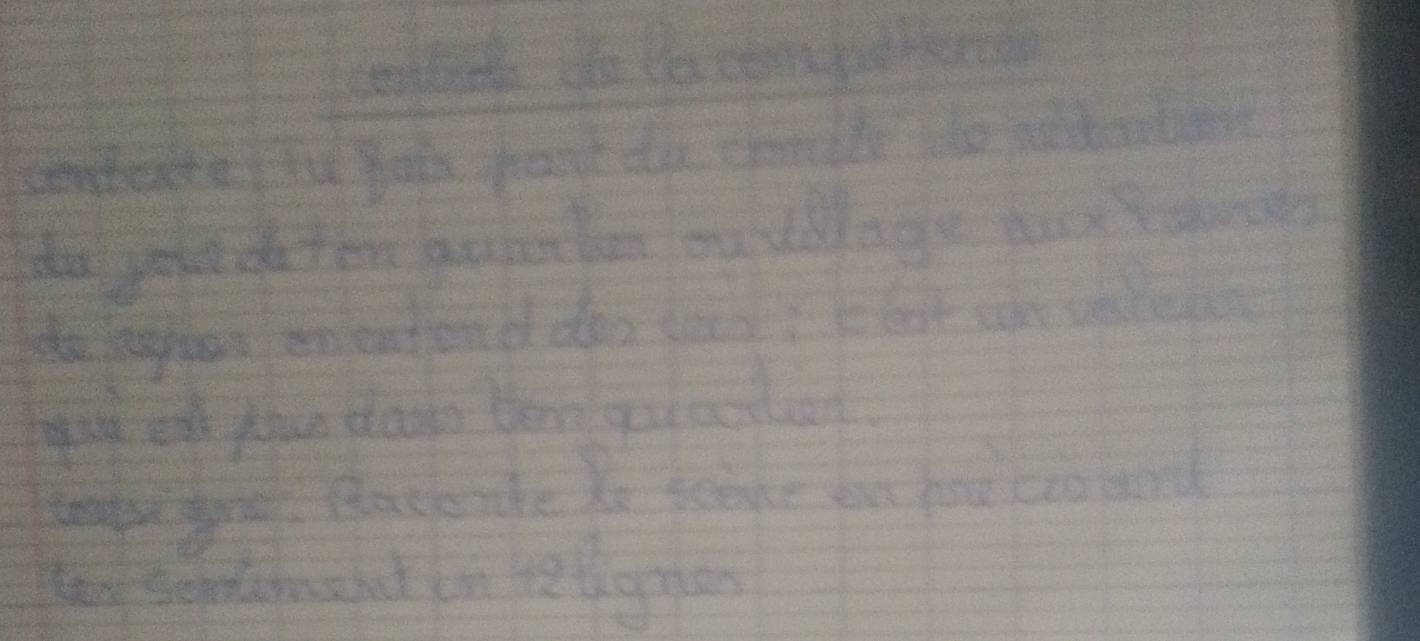 de la
contexte: tu fais part du comité de
de ton quartier ou village aux heures
de repos on entend des cris: c'est un voleur
qui est pris dans ton quartier.
consigne. Raconte la scène en précisant
tes sentiment en 12 lignes